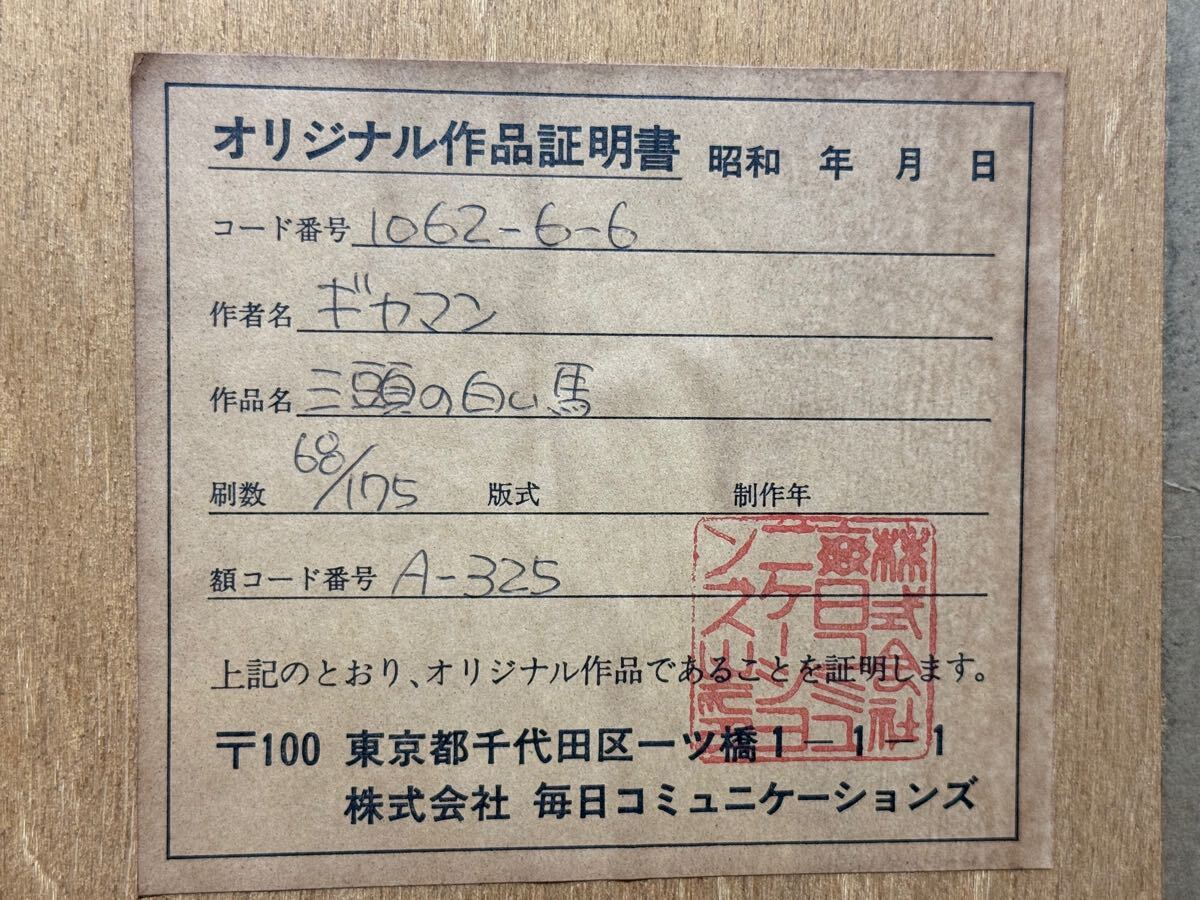 オリジナル作品証明書 昭和 年 月 日
コード番号 1062-6-6
作者名 ギヤマン
作品名 三頭の白い馬
刷数 68/175 版式 制作年
額コード番号 A-325
上記のとおり、オリジナル作品であることを証明します。
〒100 東京都千代田区一ツ橋1-1-1
株式会社 毎日コミュニケーションズ
株式会社
毎日コミュ
ニケーショ
ンズ